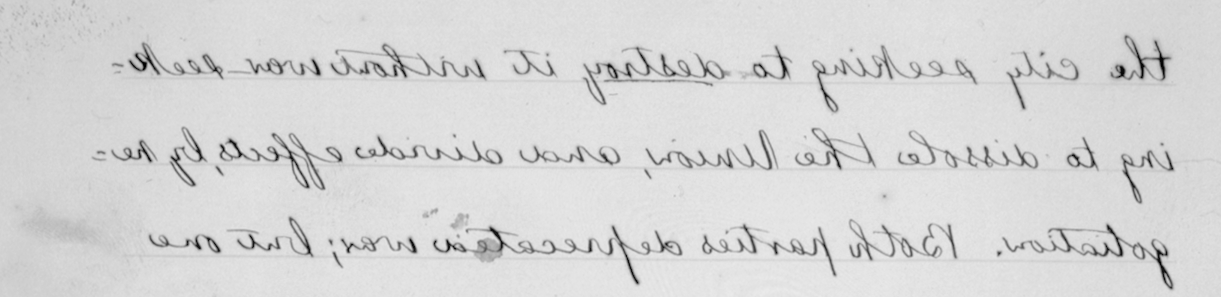 the city seeking to destroy it without war - seek-
ing to dissole the Union, and divide effects, by ne-
gotiation. Both parties deprecated war; but one